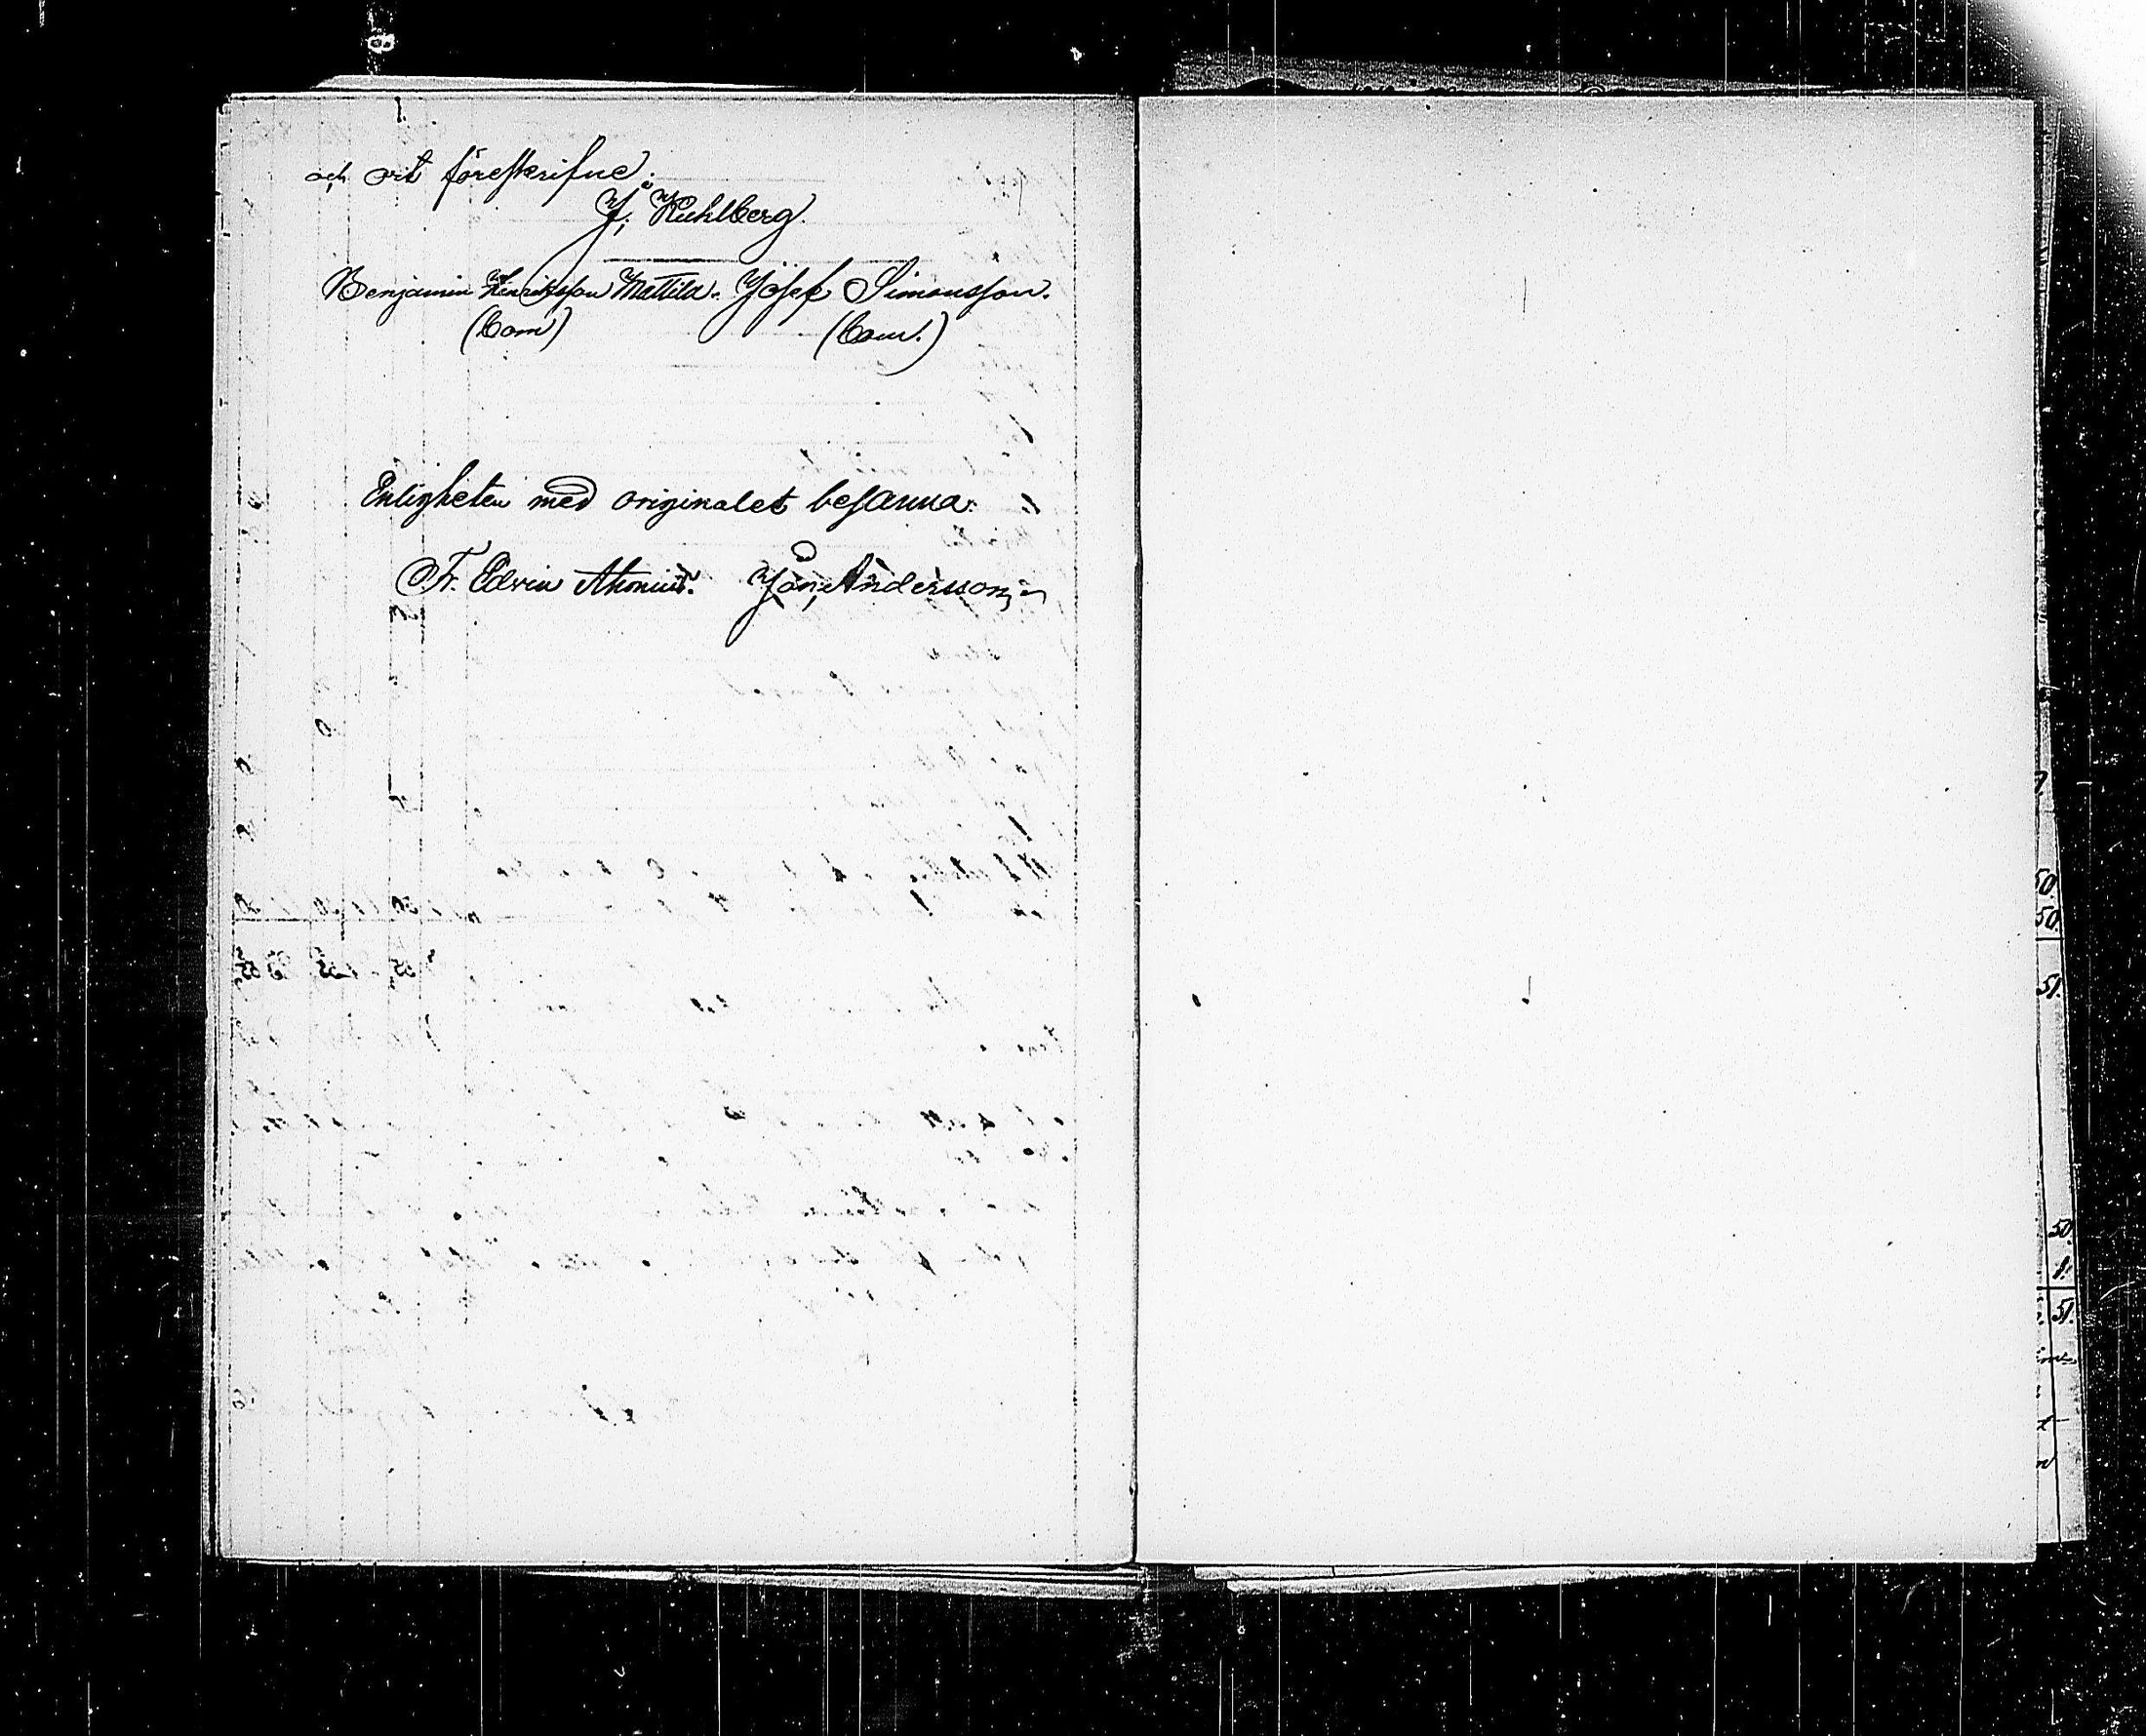 och ort föreskrifne.
J. Kuhlberg.
Benjamin Henriksson Mattila. Josef Simonsson.
(Bom) (Bom.)
Enligheten med originalet besanna:
Fr. Edvin Johan Andersson
50.
50.
51.
50.
1.
51.